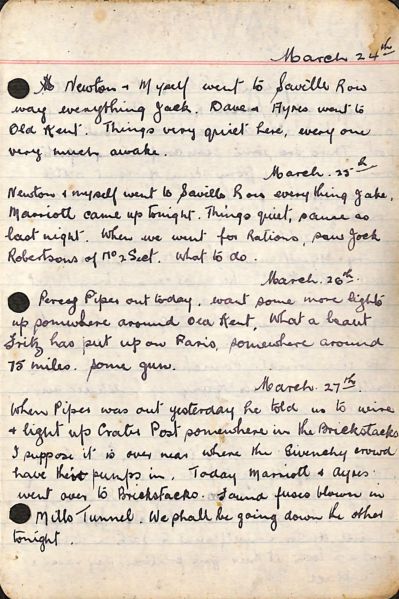 March 24th
Newton & Myself went to Saville Row
way everything Jack. Dave & Ayres went to
Old Kent. Things very quiet here, every one
very much awake.
March. 25th
Newton & myself went to Saville Row everything Jake.
Marriott came up tonight. Things quiet, same as
last night. When we went for Rations, saw Jock
Robertsons of No 2 Sect. What to do.
March. 26th.
Percy Pipes out today, want some more lights
up somewhere around Old Kent, What a beaut
Fritz has put up on Paris, somewhere around
75 miles. Some gun.
March. 27th.
When Pipes was out yesterday he told us to wire
& light up Crater Post somewhere in the Brickstacks
I suppose it is over near where the Givenchy crowd
have their pumps in. Today Marriott & Ayres.
went over to Brickstacks. Found fuses blown in
Mills Tunnel. We shall be going down the other
tonight.